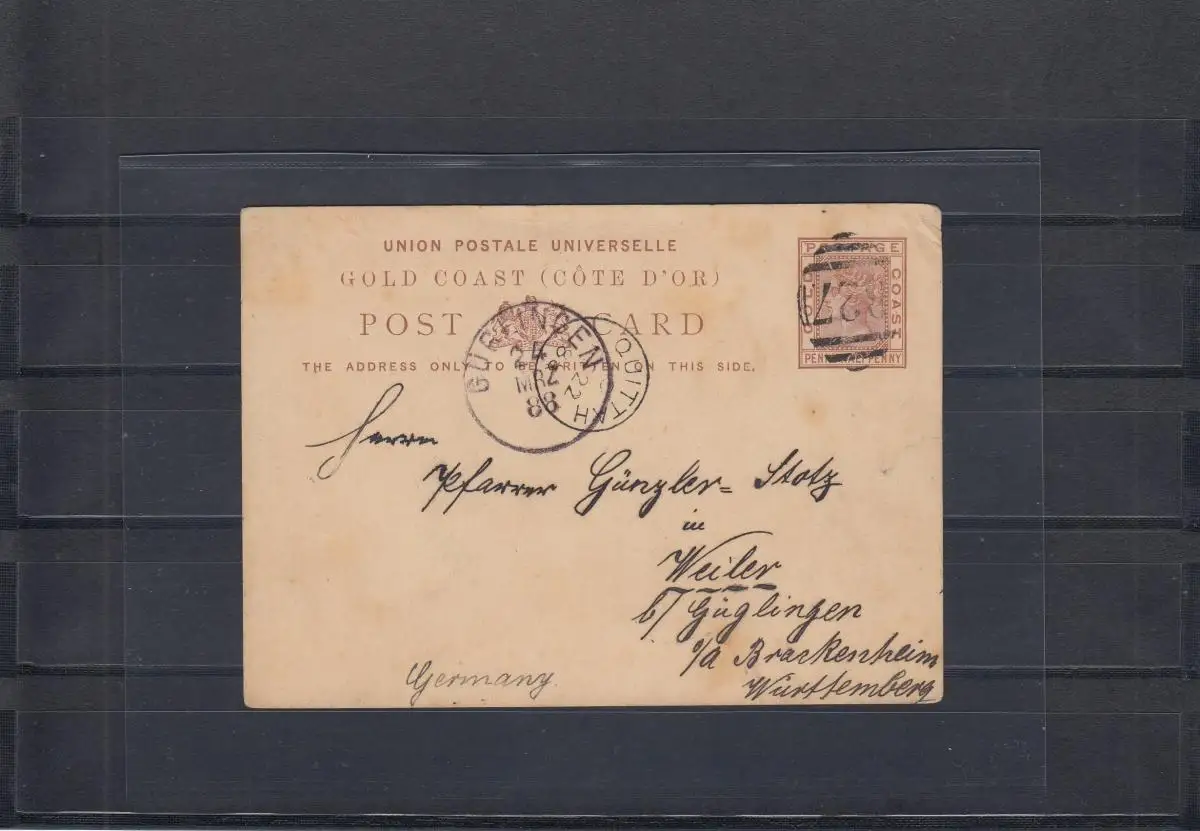 UNION POSTALE UNIVERSELLE
GOLD COAST (CÔTE D'OR)
POST CARD
THE ADDRESS ONLY TO BE WRITTEN ON THIS SIDE.
POSTAGE
GOLD
COAST
PENNY HALFPENNY
GÜGLINGEN
MRZ
88
QUITTAH
22
88
Herrn
Pfarrer Günzler- Stotz
in
Weiler
b/ Güglingen
o/a Brackenheim
Württemberg
Germany.